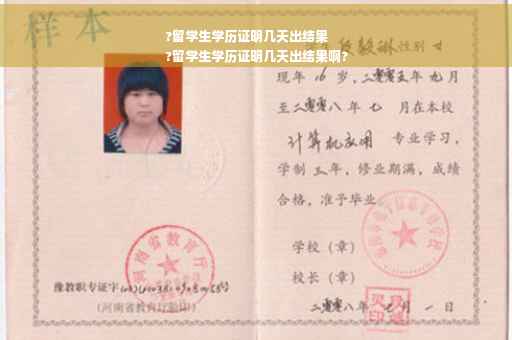 样本
?留学生学历证明几天出结果
?留学生学历证明几天出结果啊?
性别 女
现年 16 岁，二零零五年 九月
至二零零八年 七 月在本校
计算机应用 专业学习，
学制 三 年，修业期满，成绩
合格，准予毕业
学校（章）
校长（章）
豫教职专证字
(河南省教育厅验印)
河南省教育厅
二零零八年 七 月 一 日